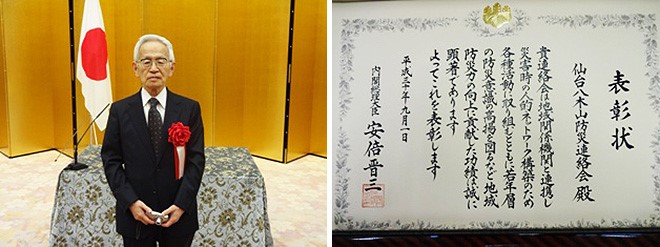 表彰状
仙台八木山防災連絡会 殿
貴連絡会は地域関係機関と連携し
災害時の人的ネットワーク構築のため
各種活動に取り組むとともに若年層
の防災意識の高揚を図るなど地域
防災力の向上に貢献した功績は誠に
顕著であります
よってこれを表彰します
平成二十五年九月一日
内閣総理大臣 安倍晋三